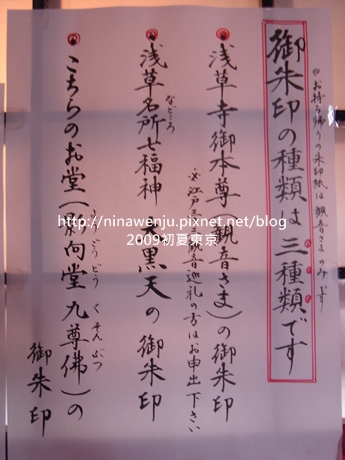 御朱印の種類は三種類です
お持ち帰りの朱印紙は観音さまのみです
浅草寺御本尊(観音さま)の御朱印
※江戸三十三観音巡礼の方はお申出下さい
などころ
浅草名所七福神 大黒天の御朱印
こちらのお堂(影向堂 九尊佛)の
ようごうどう くそんぶつ
御朱印
http://ninawenju.net/blog
2009初夏東京